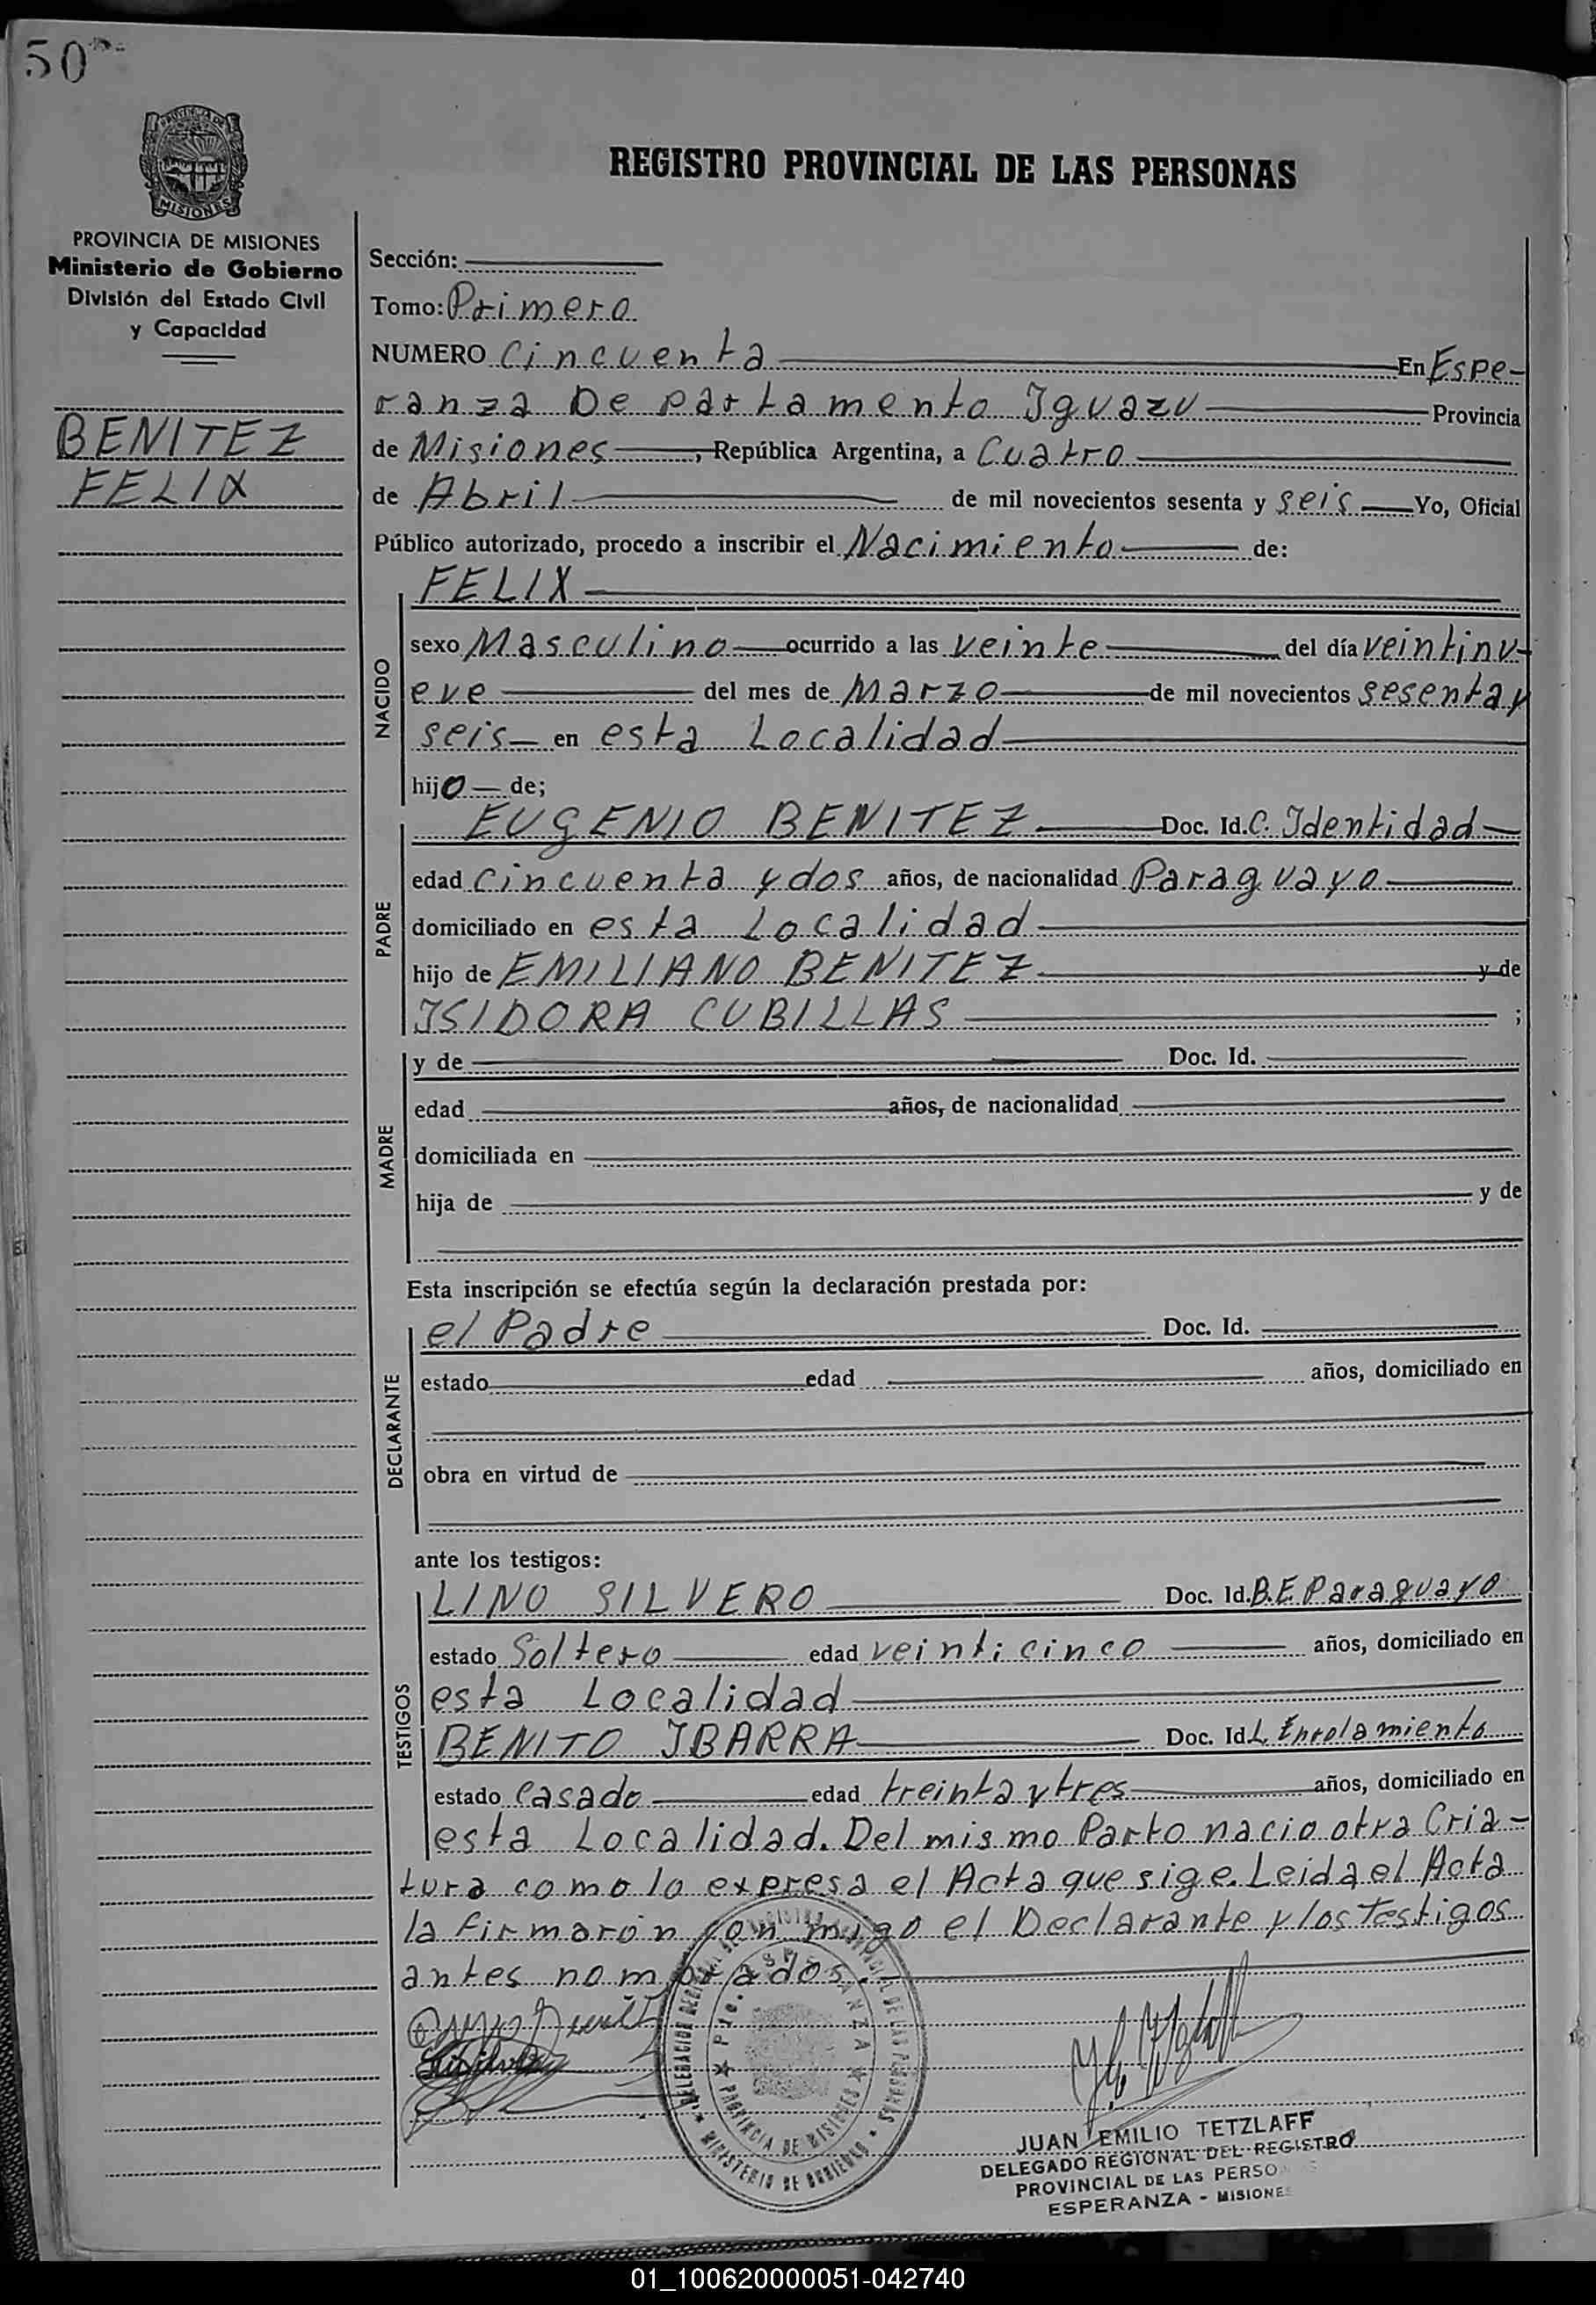 50
MISIONES
PROVINCIA DE MISIONES
Ministerio de Gobierno
División del Estado Civil
y Capacidad
BENITEZ
FELIX
REGISTRO PROVINCIAL DE LAS PERSONAS
Sección:
Tomo: Primero
NUMERO Cincuenta En Espe-
ranza Departamento Iguazu Provincia
de Misiones, República Argentina, a Cuatro
de Abril de mil novecientos sesenta y seis Yo, Oficial
Público autorizado, procedo a inscribir el Nacimiento de:
NACIDO
FELIX
sexo Masculino ocurrido a las veinte del día veintinu-
eve del mes de Marzo de mil novecientos sesenta y
seis en esta Localidad
hijo de;
PADRE
EUGENIO BENITEZ Doc. Id. C. Identidad
edad Cincuenta y dos años, de nacionalidad Paraguayo
domiciliado en esta Localidad
hijo de EMILIANO BENITEZ y de
ISIDORA CUBILLAS ;
MADRE
y de Doc. Id.
edad años, de nacionalidad
domiciliada en
hija de y de
Esta inscripción se efectúa según la declaración prestada por:
DECLARANTE
el Padre Doc. Id.
estado edad años, domiciliado en
obra en virtud de
ante los testigos:
TESTIGOS
LINO SILVERO Doc. Id. B.E. Paraguayo
estado Soltero edad veinticinco años, domiciliado en
esta Localidad
BENITO IBARRA Doc. Id L. Enrolamiento
estado Casado edad treinta y tres años, domiciliado en
esta Localidad. Del mismo Parto nacio otra Cria-
tura como lo expresa el Acta que sige. Leida el Acta
la firmarón conmigo el Declarante y los Testigos
antes nombrados.
Pto. ESPERANZA
PROVINCIA DE MISIONES
MINISTERIO DE GOBIERNO
JUAN EMILIO TETZLAFF
DELEGADO REGIONAL DEL REGISTRO
PROVINCIAL DE LAS PERSO
ESPERANZA - MISIONES
01_100620000051-042740